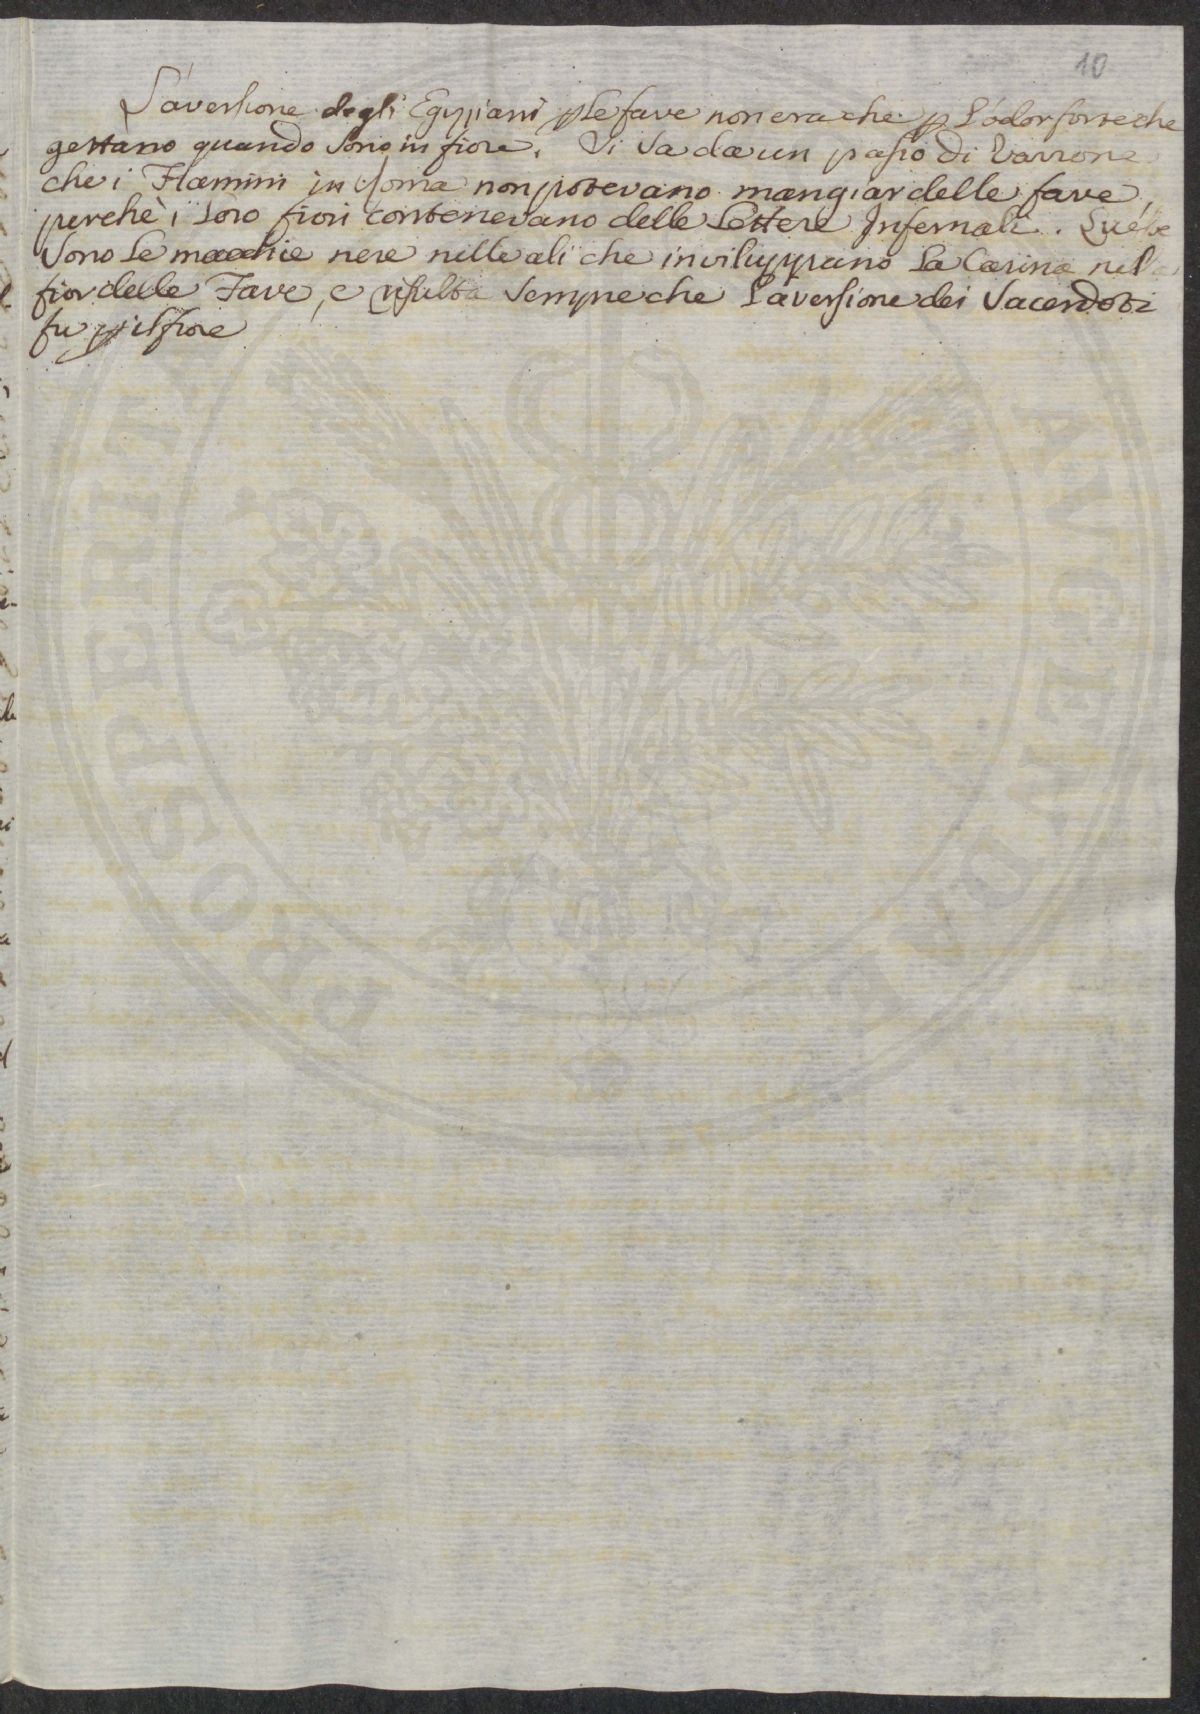 10
L'aversione degli Egyziani p le fave non era che p L'odor forte che
gettano quando sono in fiore. Si sa da un passo di Varrone
che i Flamini in Roma non potevano mangiar delle fave,
perchè i loro fiori contenevano delle Lettere Infernali. Queste
sono le macchie nere nelle ali che inviluppano La Carina nel
fior delle Fave, e risulta sempre che L'aversione dei Sacerdoti
fu p il fiore
PROSPERITAS
AVGENDAE